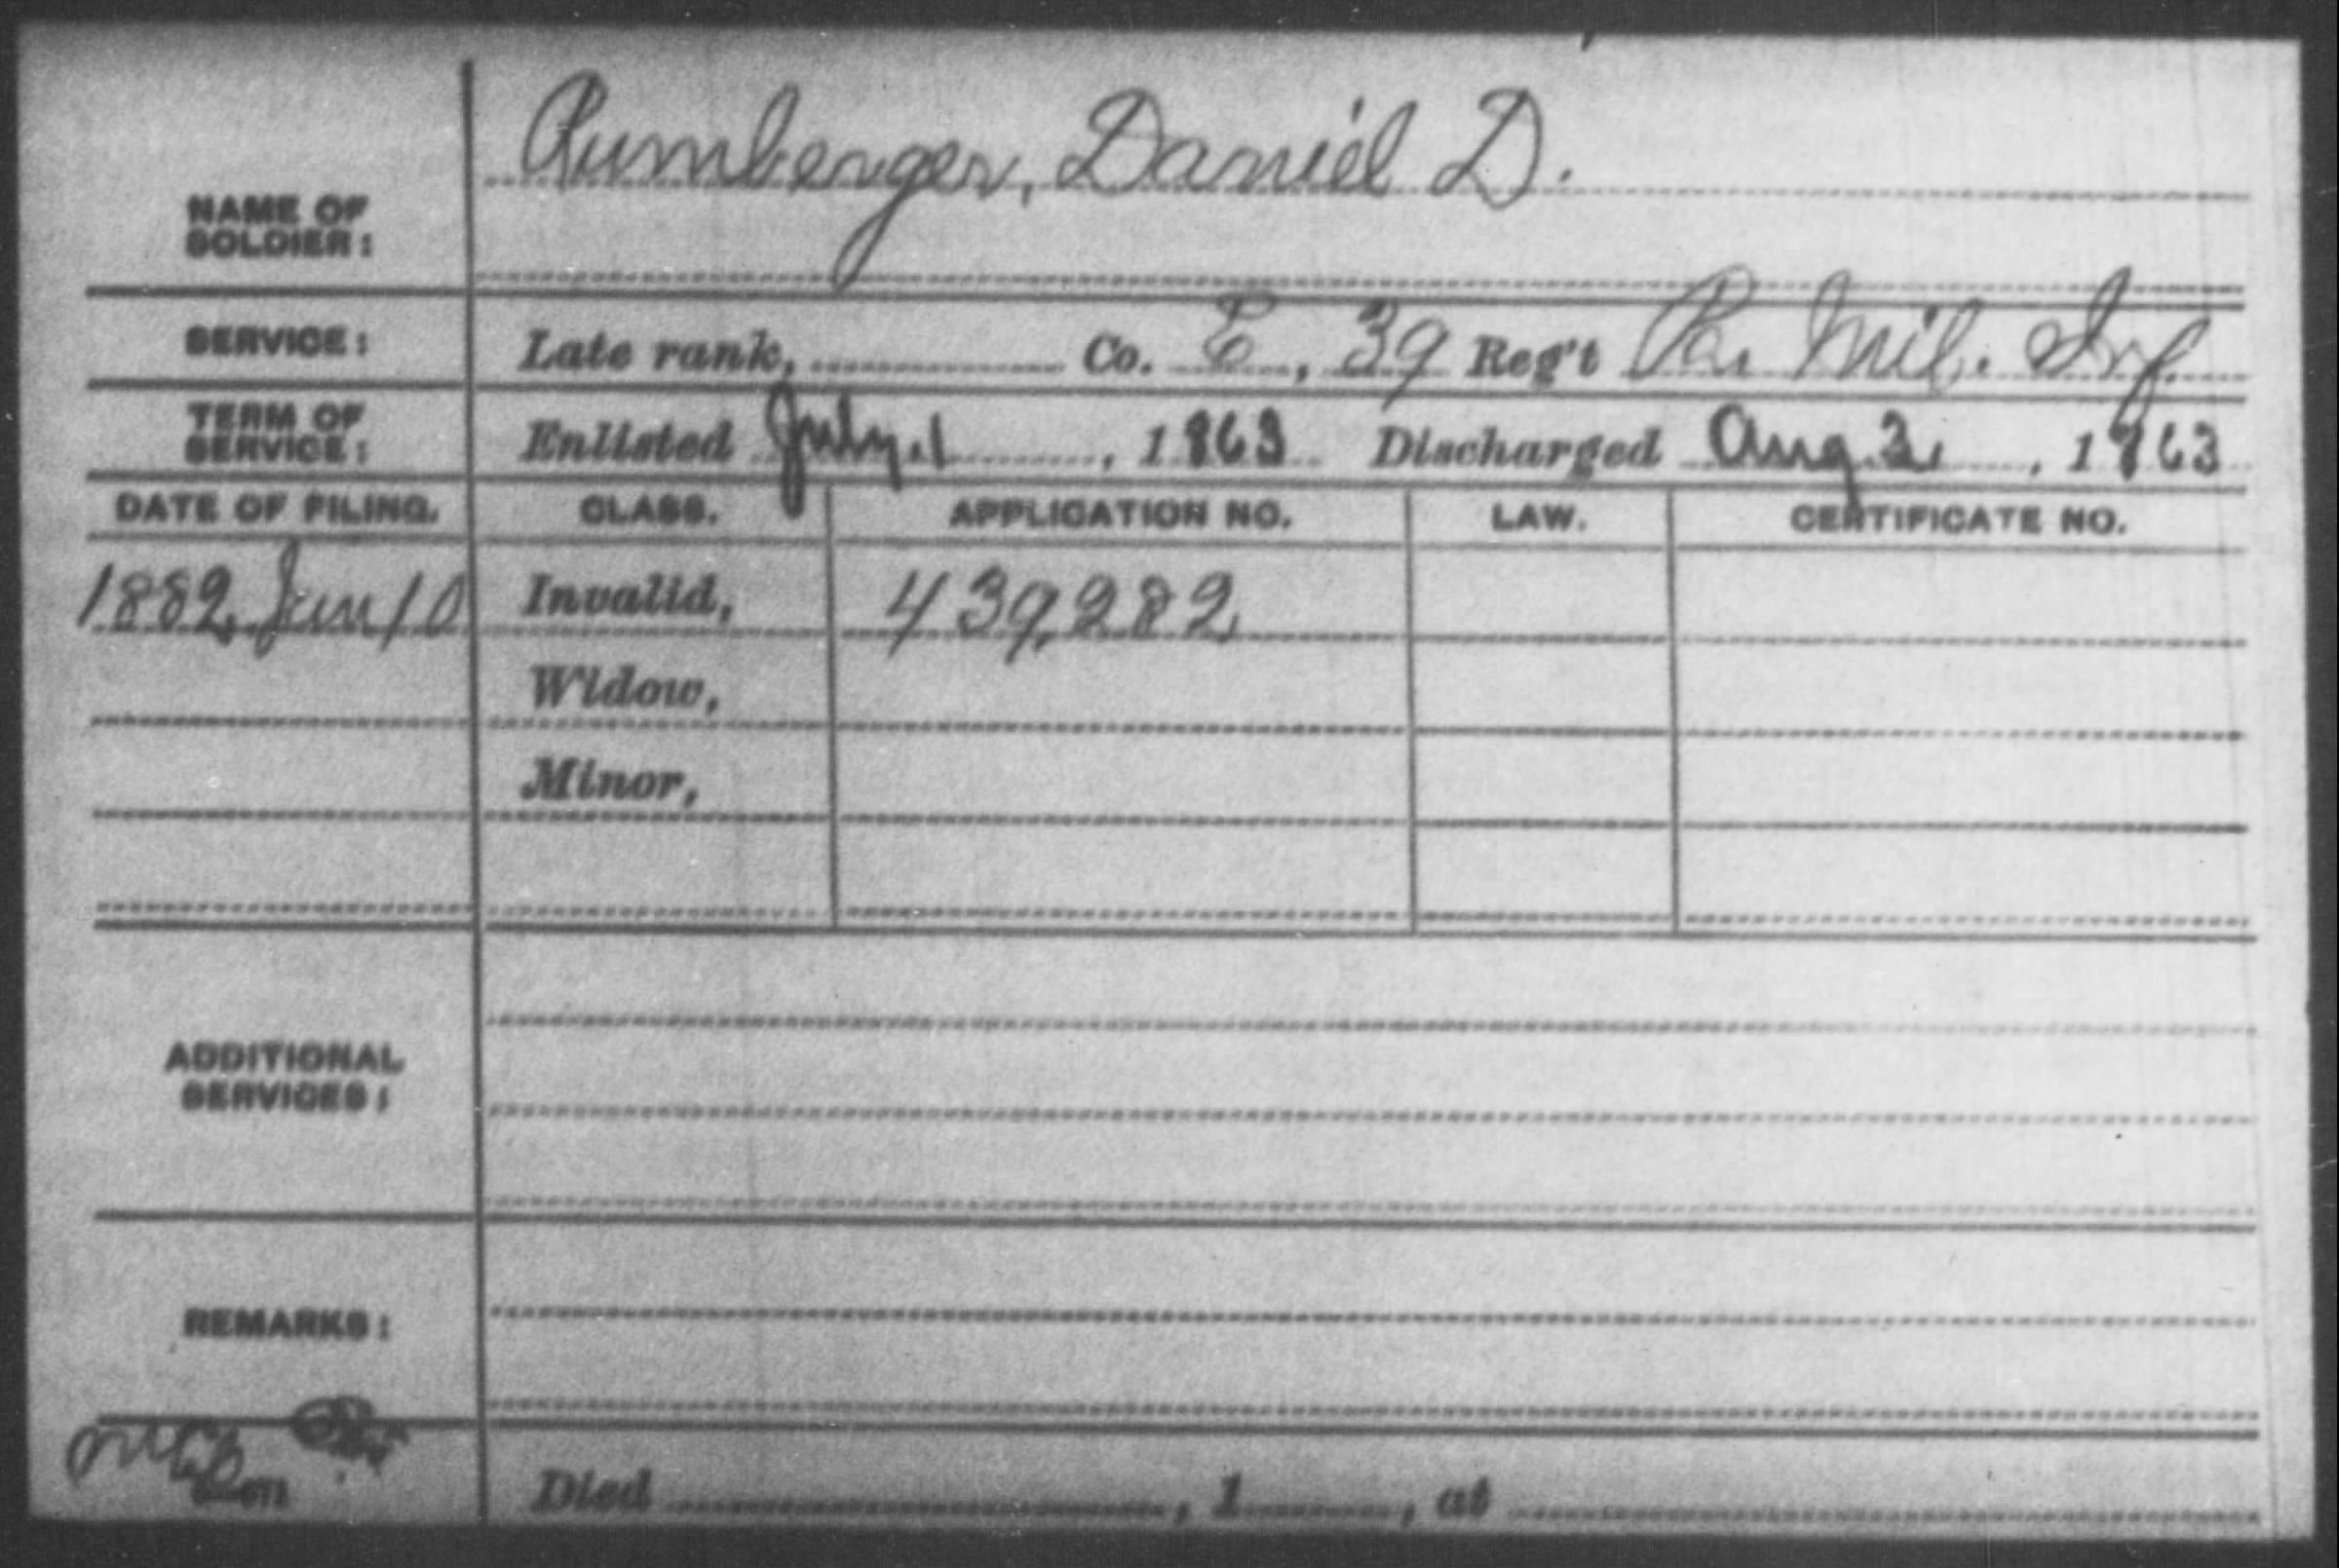 Rumberger, Daniel D.
NAME OF
SOLDIER:
SERVICE: Late rank, Co. E, 39 Reg't Pa. Mil. Inf.
TERM OF
SERVICE: Enlisted July 1, 1863 Discharged Aug 2, 1863
DATE OF FILING. CLASS. APPLICATION NO. LAW. CERTIFICATE NO.
1882 Jan 10 Invalid, 439,282
Widow,
Minor,
ADDITIONAL
SERVICES:
REMARKS:
Died , 1 , at